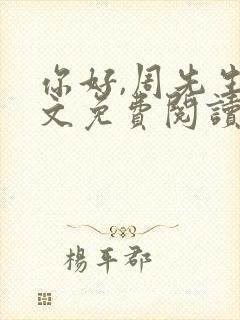 你好,周先生
文免費閱讀
楊平郡